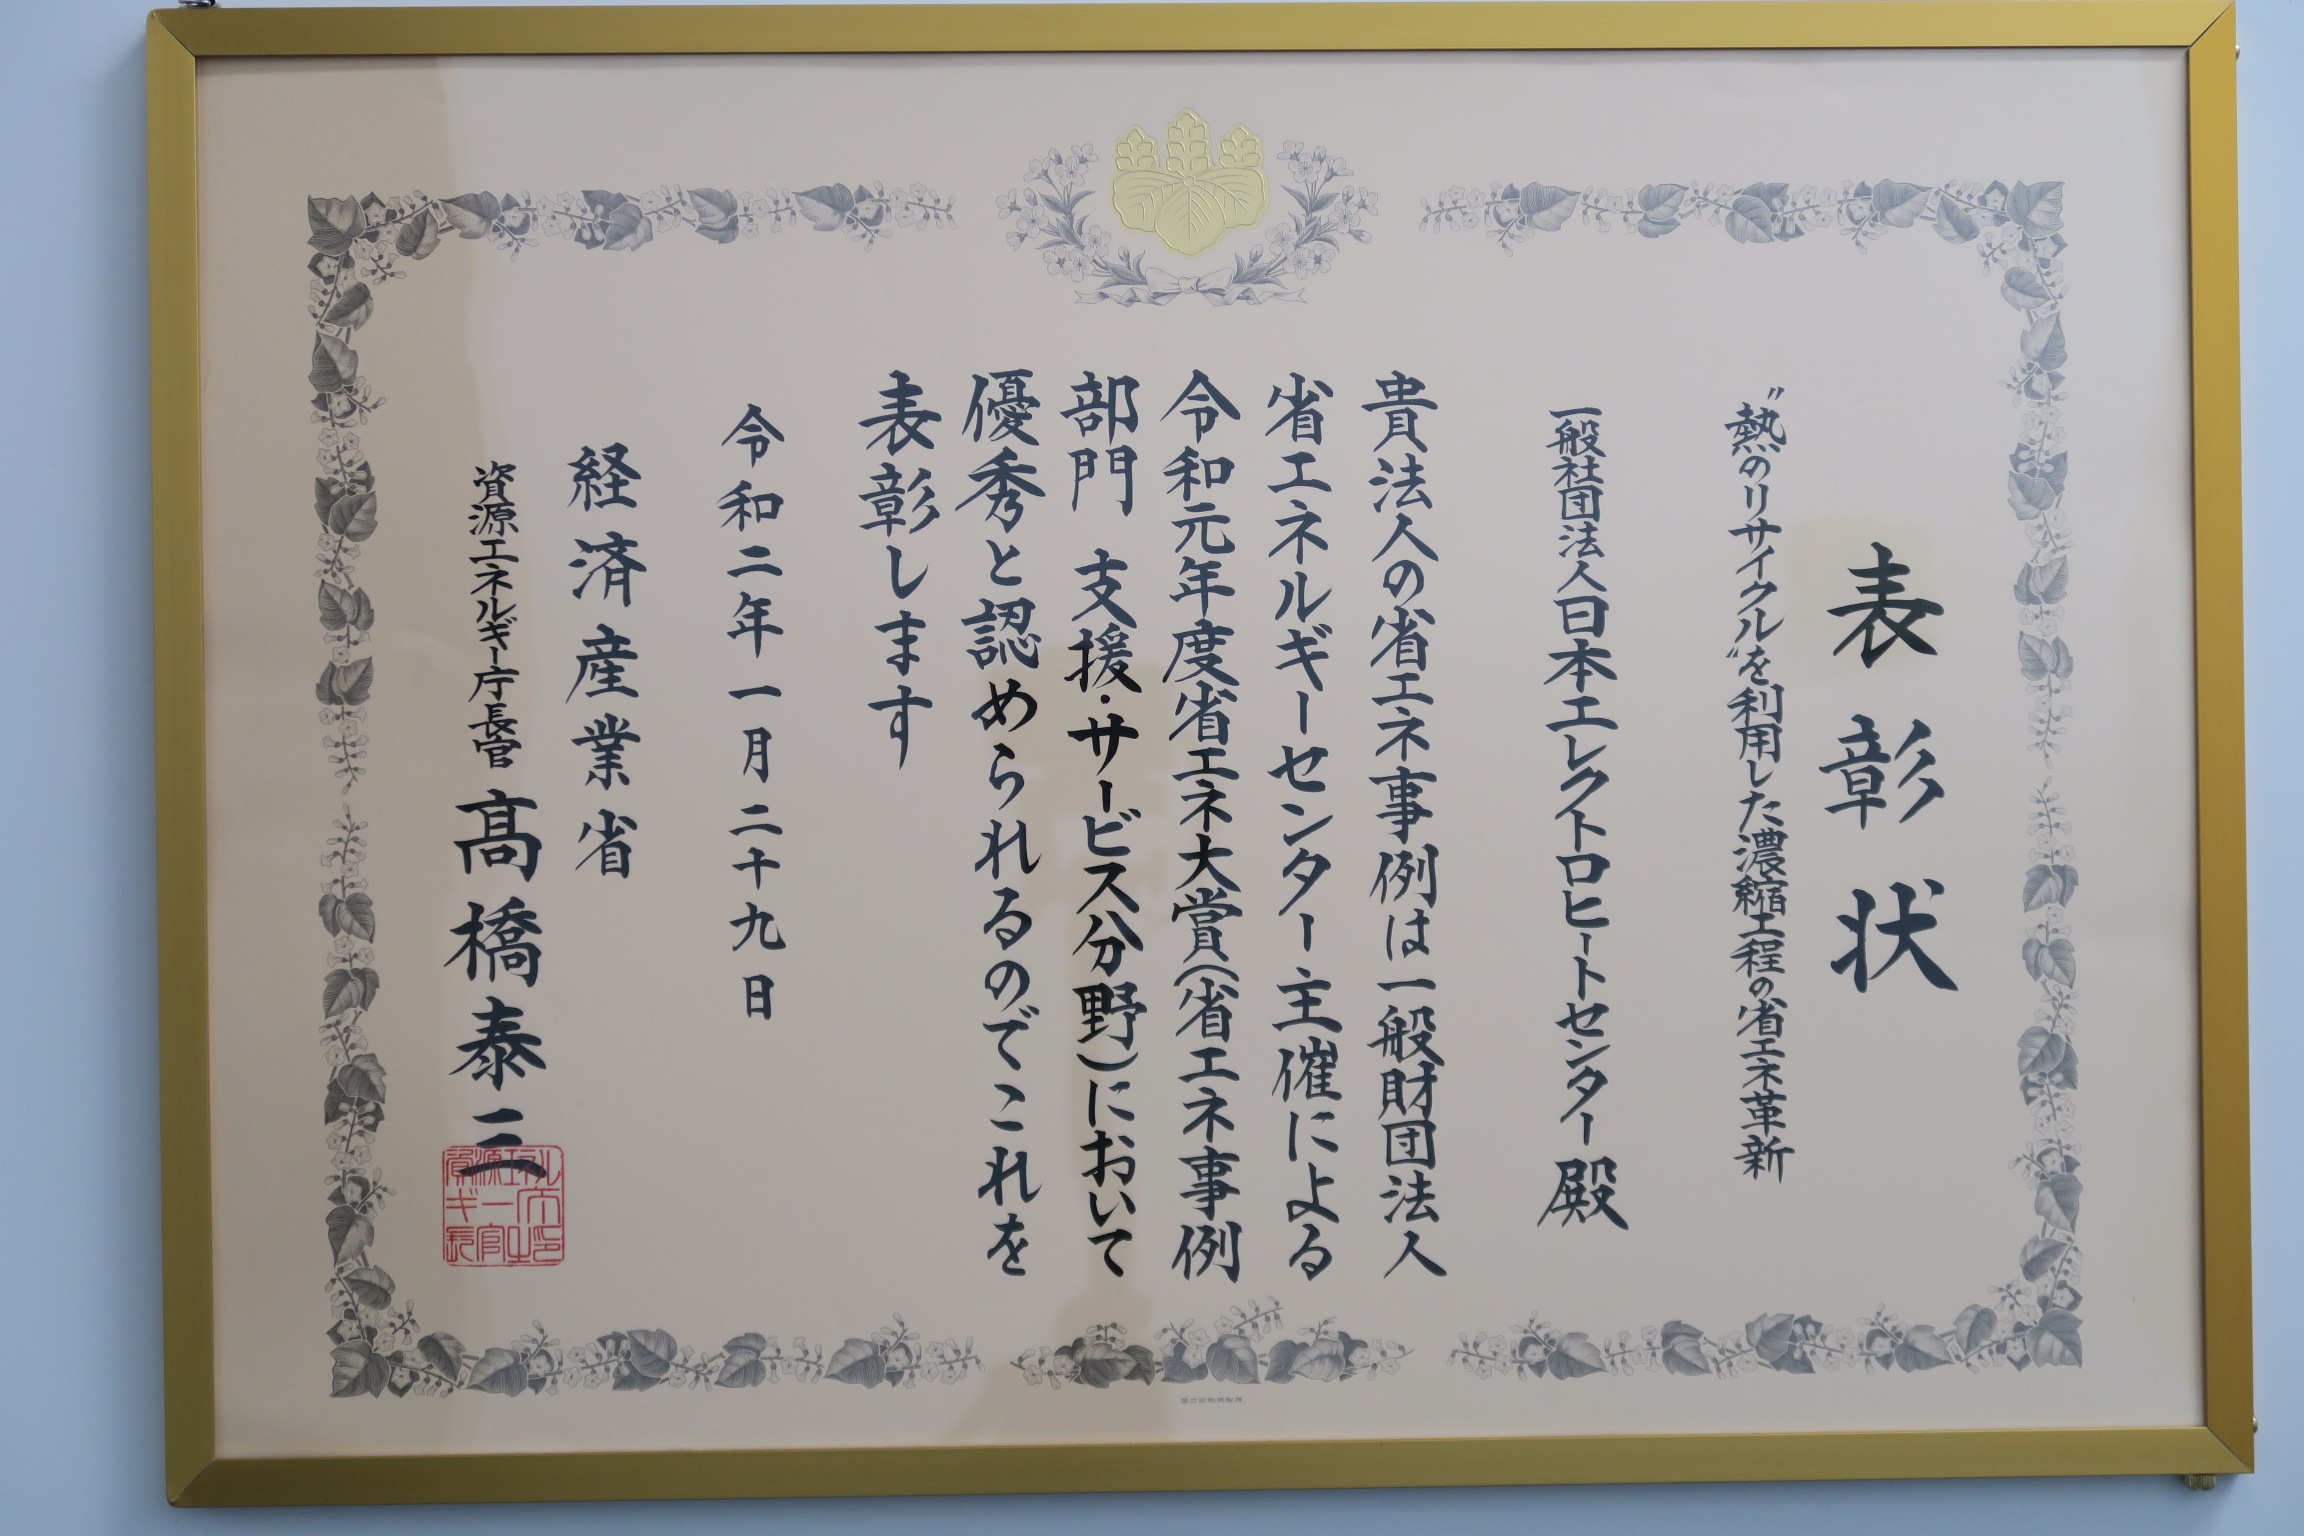 表彰状
〝熱のリサイクル〟を利用した濃縮工程の省エネ革新
一般社団法人日本エレクトロヒートセンター 殿
貴法人の省エネ事例は一般財団法人
省エネルギーセンター主催による
令和元年度省エネ大賞(省エネ事例
部門 支援・サービス分野)において
優秀と認められるのでこれを
表彰します
令和二年一月二十九日
経済産業省
資源エネルギー庁長官 髙橋泰三